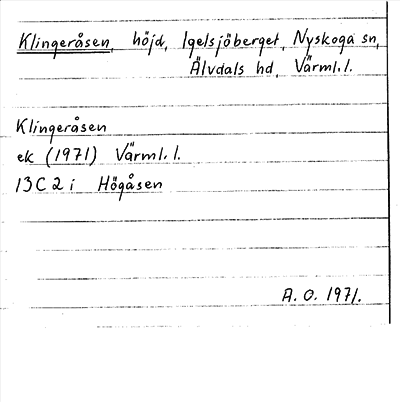 Klingeråsen, höjd, Igelsjöberget, Nyskoga sn,
Älvdals hd, Värml. l.
Klingeråsen
ek (1971) Värml. l.
13C 2 i Högåsen
A. O. 1971.